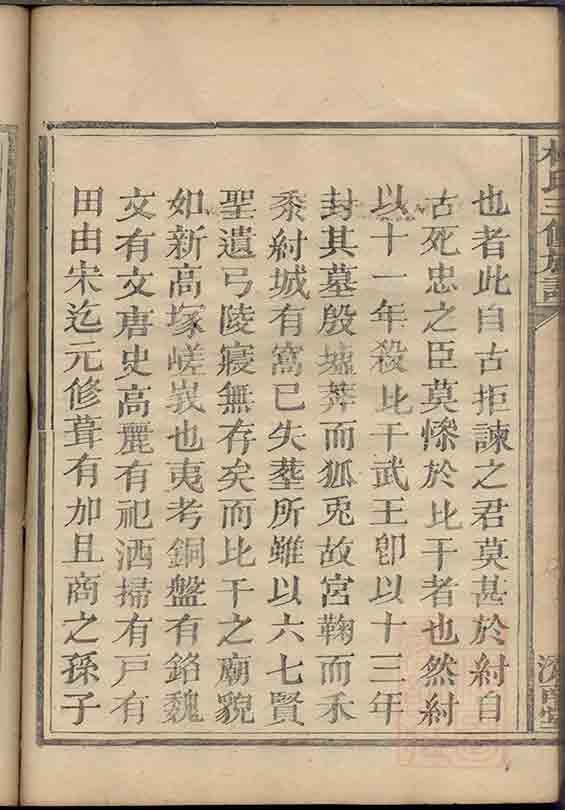 林氏三修族譜
也者此自古拒諫之君莫甚於紂自
古死忠之臣莫慘於比干者也然紂
以十一年殺比干武王卽以十三年
封其墓殷墟莽而狐兎故宮鞠而禾
黍紂城有窩已失塟所雖以六七賢
聖遺弓陵寢無存矣而比干之廟貌
如新高塚嵯峩也夷考銅盤有銘魏
文有文唐史高麗有祀洒掃有戸有
田由宋迄元修葺有加且商之孫子